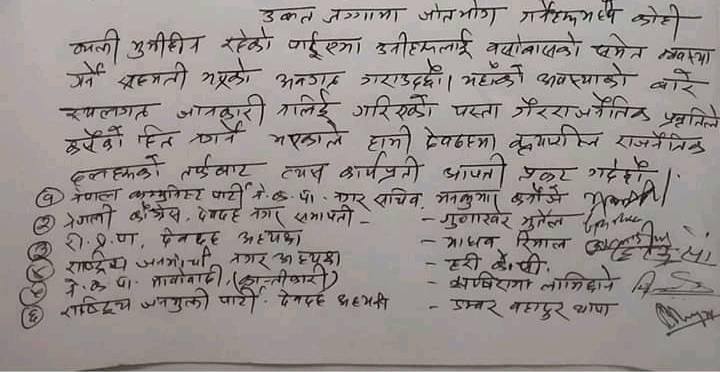 उक्त जग्गामा जोतभोग गर्नेहरूमध्ये कोही
व्यक्ती भुमीहीन रहेको पाईएमा उनीहरूलाई बसोबासको समेत व्यवस्था
गर्न सहमती भएको अवगत गराउदछौं। यहाँको अवस्थाको बारे
स्थलगत जानकारी नलिई गरिएको यस्ता गैरराजनैतिक प्रवृतिले
कसैको हित नगर्ने भएकाले हामी देवदहमा कृयाशिल राजनैतिक
दलहरूको तर्फबाट त्यस कार्यप्रती आपत्ती प्रकट गर्दछौं।
① नेपाल कम्युनिस्ट पार्टी ने.क.पा. नगर सचिव,
② नेपाली काँग्रेस, देवदह नगर सभापती - - गुणाखर भुसाल
③ देवदह अध्यक्ष - माधव रिमाल
④ राष्ट्रिय जनमोर्चा नगर अध्यक्ष - हरी के.सी.
⑤ ने.क.पा. माओवादी, (क्रान्तीकारी)
⑥ राष्ट्रिय जनमुक्ती पार्टी देवदह अध्यक्ष - डम्बर बहादुर थापा